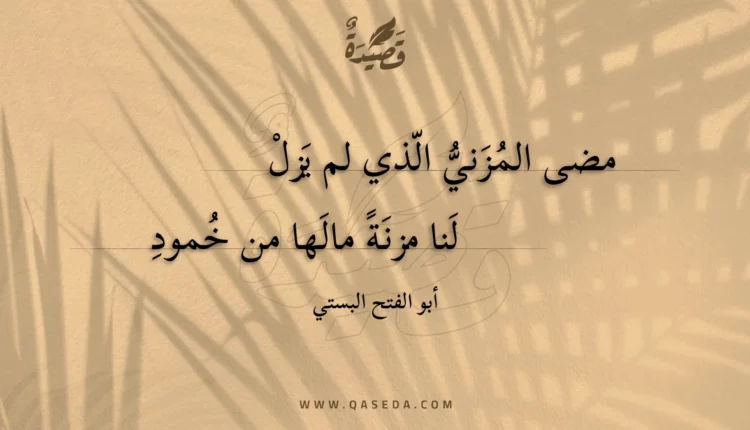 قَصِيْدَةٌ
مضى المُزَنيُّ الّذي لم يَزلْ
لَنا مزنَةً مالَها من خُمودِ
أبو الفتح البستي
WWW.QASEDA.COM